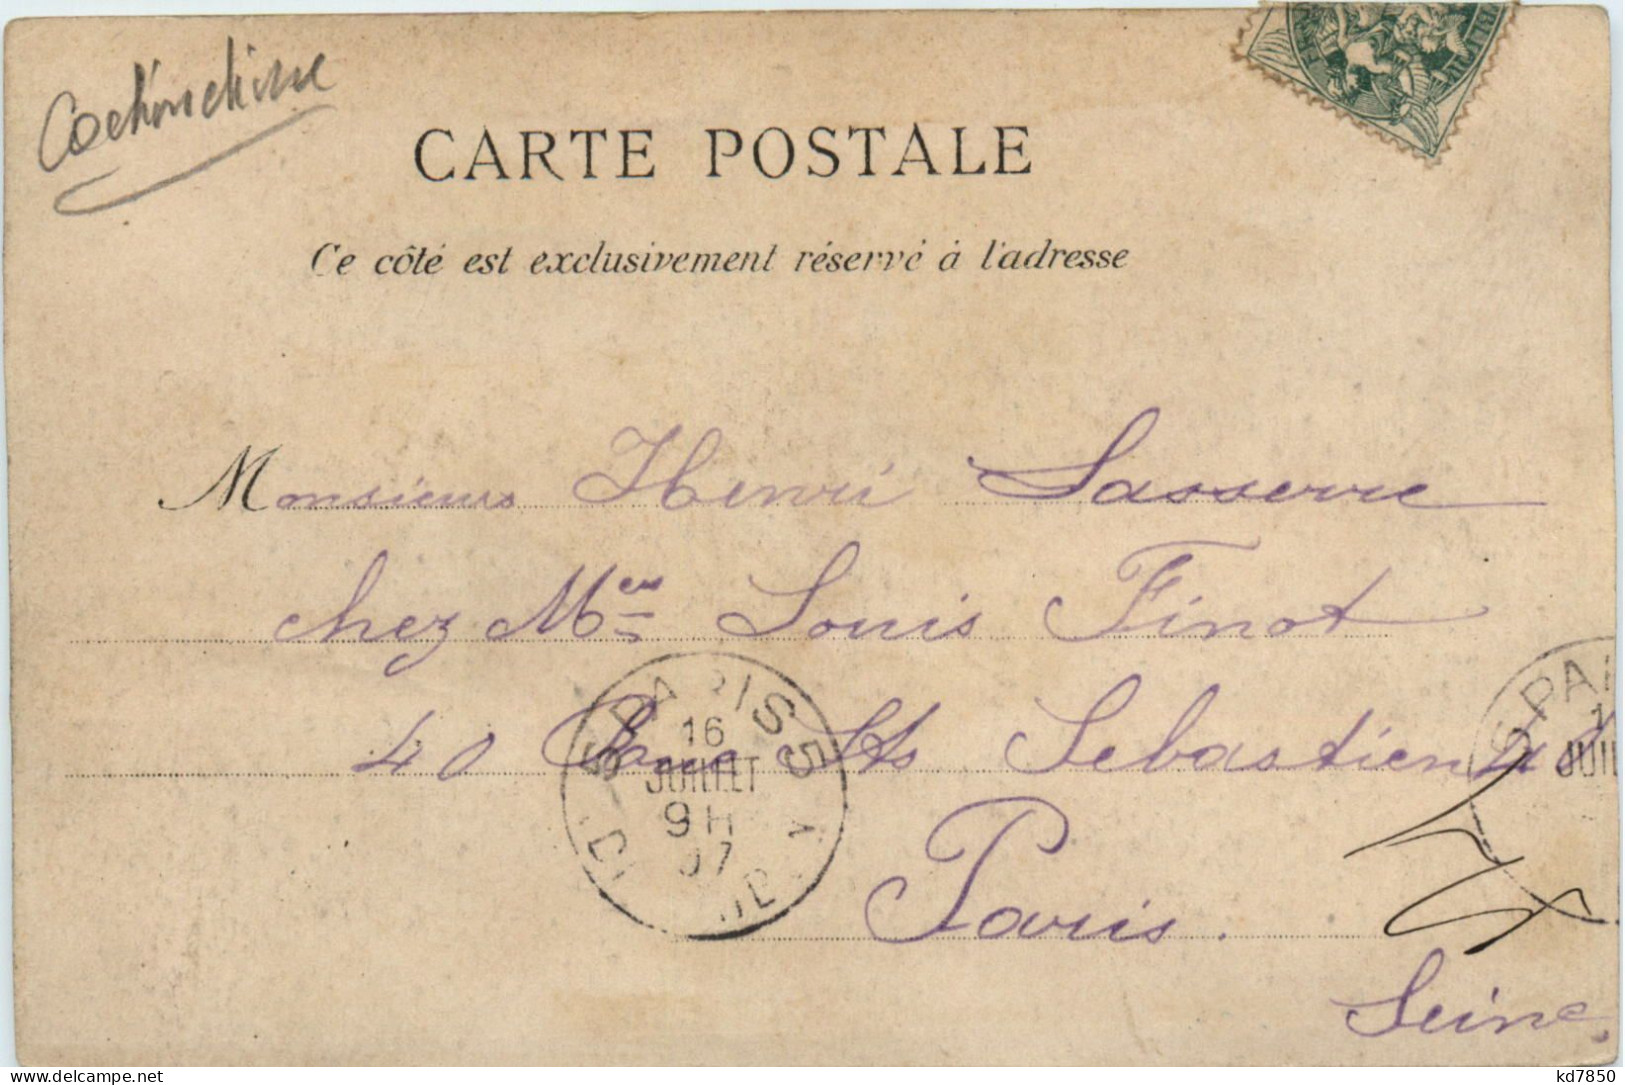 Cochinchine
CARTE POSTALE
Ce côté est exclusivement réservé à l'adresse
Monsieur Henri Lasserre
chez Mme Louis Finot
40 Rue St Sebastien 40
Paris.
Seine
PARIS 5
16
JUILLET
9H
07
PAR
JUIL
kd7850